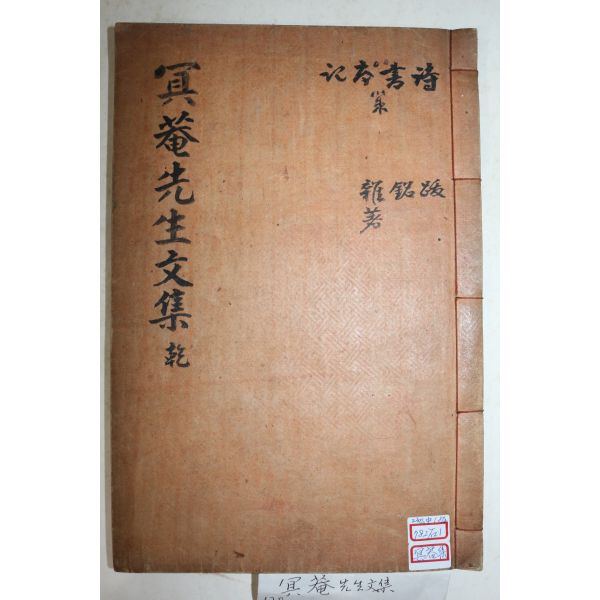 冥菴先生文集 乾
詩書序記
策
跋銘雜
著
冥菴集
冥菴先生文集